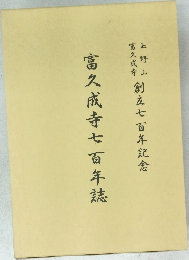 富久成寺 創立七百年記念
富久成寺七百年誌